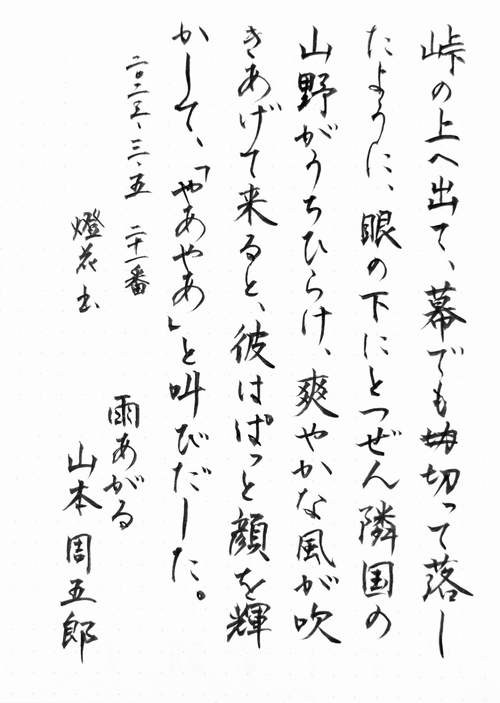 峠の上へ出て、幕でも切って落し
たように、眼の下にとつぜん隣国の
山野がうちひらけ、爽やかな風が吹
きあげて来ると、彼はぱっと顔を輝
かして、「やあやあ」と叫びだした。
二〇二三、三、五 二十一番
燈花書
雨あがる
山本周五郎